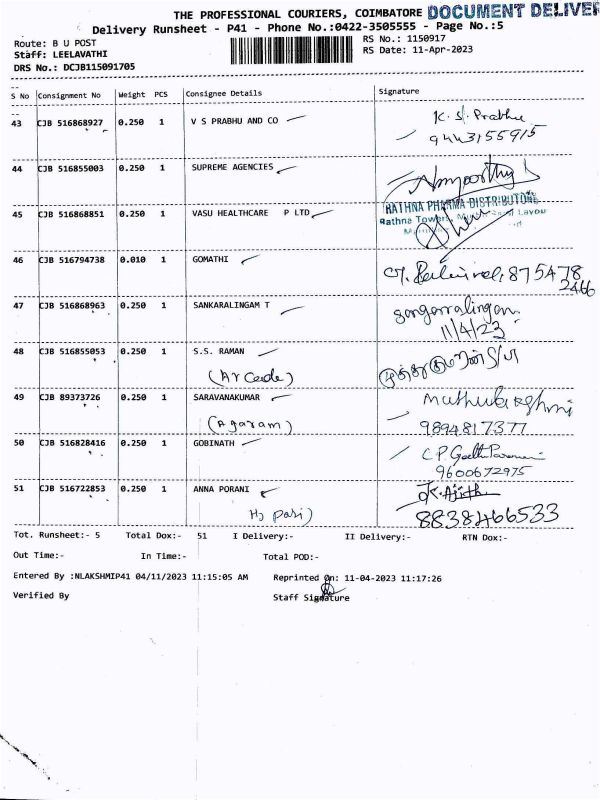 THE PROFESSIONAL COURIERS, COIMBATORE DOCUMENT DELIVER
Delivery Runsheet - P41 - Phone No.:0422-3505555 - Page No.:5
Route: B U POST
RS No.: 1150917
Staff: LEELAVATHI
RS Date: 11-Apr-2023
DRS No.: DCJB115091705
S No Consignment No Weight PCS Consignee Details Signature
43 CJB 516868927 0.250 1 V S PRABHU AND CO K. S. Prabhu
9443155915
44 CJB 516855003 0.250 1 SUPREME AGENCIES
45 CJB 516868851 0.250 1 VASU HEALTHCARE P LTD RATHNA PHARMA DISTRIBUTORS
Rathna Towers
46 CJB 516794738 0.010 1 GOMATHI 875478
2466
47 CJB 516868963 0.250 1 SANKARALINGAM T
11/4/23
48 CJB 516855053 0.250 1 S.S. RAMAN
(Ar Cade)
49 CJB 89373726 0.250 1 SARAVANAKUMAR
(Agaram) 9894817377
50 CJB 516828416 0.250 1 GOBINATH
9600672975
51 CJB 516722853 0.250 1 ANNA PORANI
8838466533
Tot. Runsheet:- 5 Total Dox:- 51 I Delivery:- II Delivery:- RTN Dox:-
Out Time:- In Time:- Total POD:-
Entered By :NLAKSHMIP41 04/11/2023 11:15:05 AM Reprinted On: 11-04-2023 11:17:26
Verified By Staff Signature